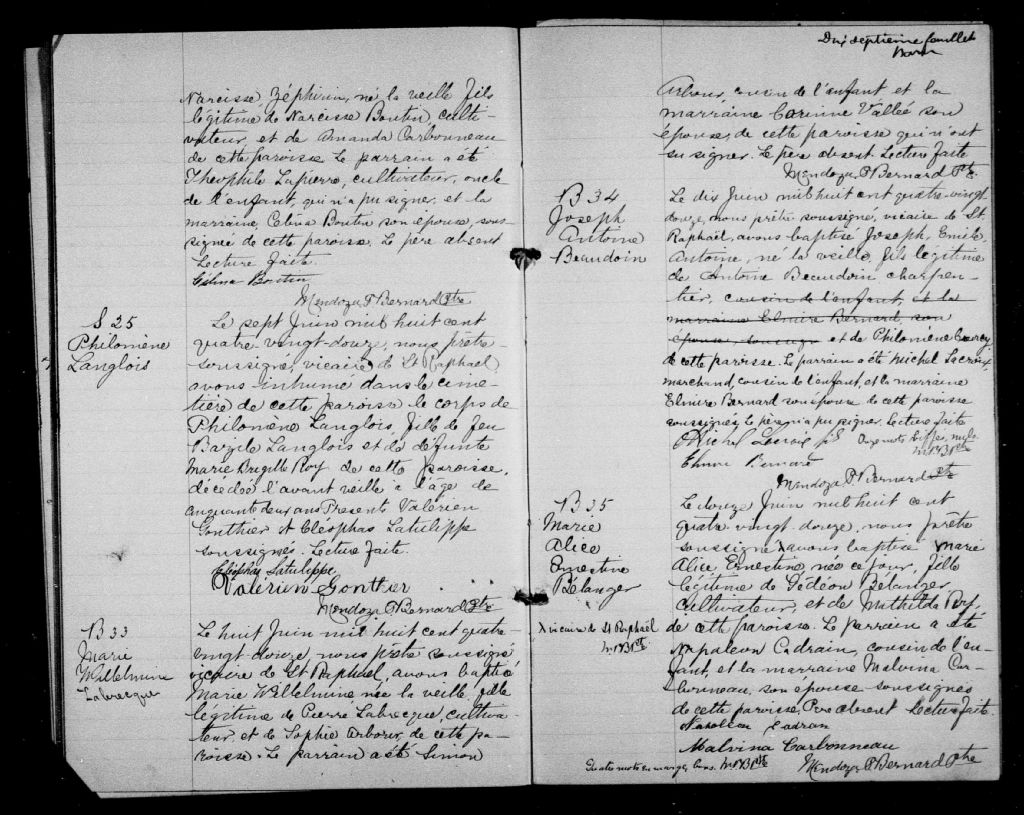 Narcisse, Zéphirin, né la veille fils
légitime de Narcisse Boutin, culti-
vateur, et de Amanda Carbonneau
de cette paroisse. Le parrain a été
Théophile Lapierre, cultivateur, oncle
de l'enfant, qui n'a pu signer, et la
marraine, Célina Boutin son épouse, sous-
signée de cette paroisse. Le père absent
Lecture faite.
Célina Boutin
Mendoza P Bernard Ptre
S 25
Philomène
Langlois
Le sept Juin mil huit cent
quatre-vingt-douze, nous, prêtre
soussigné, vicaire de St Raphaël
avons inhumé dans le cime-
tière de cette paroisse le corps de
Philomène Langlois, fille de feu
Bazile Langlois et de défunte
Marie Brigitte Roy de cette paroisse,
décédée l'avant veille a l'âge de
cinquante deux ans Présents Valérien
Gonthier et Cléophas Latulippe
soussignés. Lecture faite.
Cléophas Latulippe
Valérien Gontier
Mendoza P Bernard Ptre
B 33
Marie
Willelmine
Labrecque
Le huit Juin mil huit cent quatre
vingt-douze nous prêtre soussigné
vicaire de St Raphaël, avons baptisé
Marie Willelmine née la veille, fille
légitime de Pierre Labrecque, cultiva-
teur, et de Sophie Arbour, de cette pa-
roisse. Le parrain a été Simon
Dix septième feuillet
Arbour, cousin de l'enfant et la
marraine Corinne Vallée son
épouse, de cette paroisse qui n'ont
su signer. Le père absent. Lecture faite
Mendoza P Bernard Ptre
B 34
Joseph
Antoine
Beaudoin
Le dix Juin mil huit cent quatre-vingt
douze, nous prêtre soussigné, vicaire de St.
Raphaël, avons baptisé Joseph, Emile,
Antoine, né la veille, fils légitime
de Antoine Beaudoin charpen-
tier, cousin de l'enfant, et la
marraine Elmire Bernard, son
épouse, et de Philomène
de cette paroisse. Le parrain a été Michel Lacroix,
marchand, cousin de l'enfant, et la marraine
Elmire Bernard son épouse de cette paroisse
soussignés, Le père n'a pu signer. Lecture faite
Michel Lacroix fils mots biffés, nuls.
M P B Ptre
Elmire Bernard
Mendoza P Bernard Ptre
B 35
Marie
Alice
Ernestine
Bélanger
Le douze Juin mil huit cent
quatre vingt douze, nous prêtre
soussigné X avons baptisé Marie
Alice Ernestine, née ce jour, fille
légitime de Gédéon Bélanger,
cultivateur, et de Mathilda Roy,
X vicaire de St Raphaël
M P B Ptre
de cette paroisse. Le parrain a été
Napoléon Cadrain, cousin de l'en-
fant, et la marraine Malvina Car-
bonneau, son épouse soussignés
de cette paroisse, Père absent Lecture faite.
Napoléon Cadran
Malvina Carbonneau
Quatre mots en marge, bons. M P B Ptre
Mendoza P Bernard Ptre